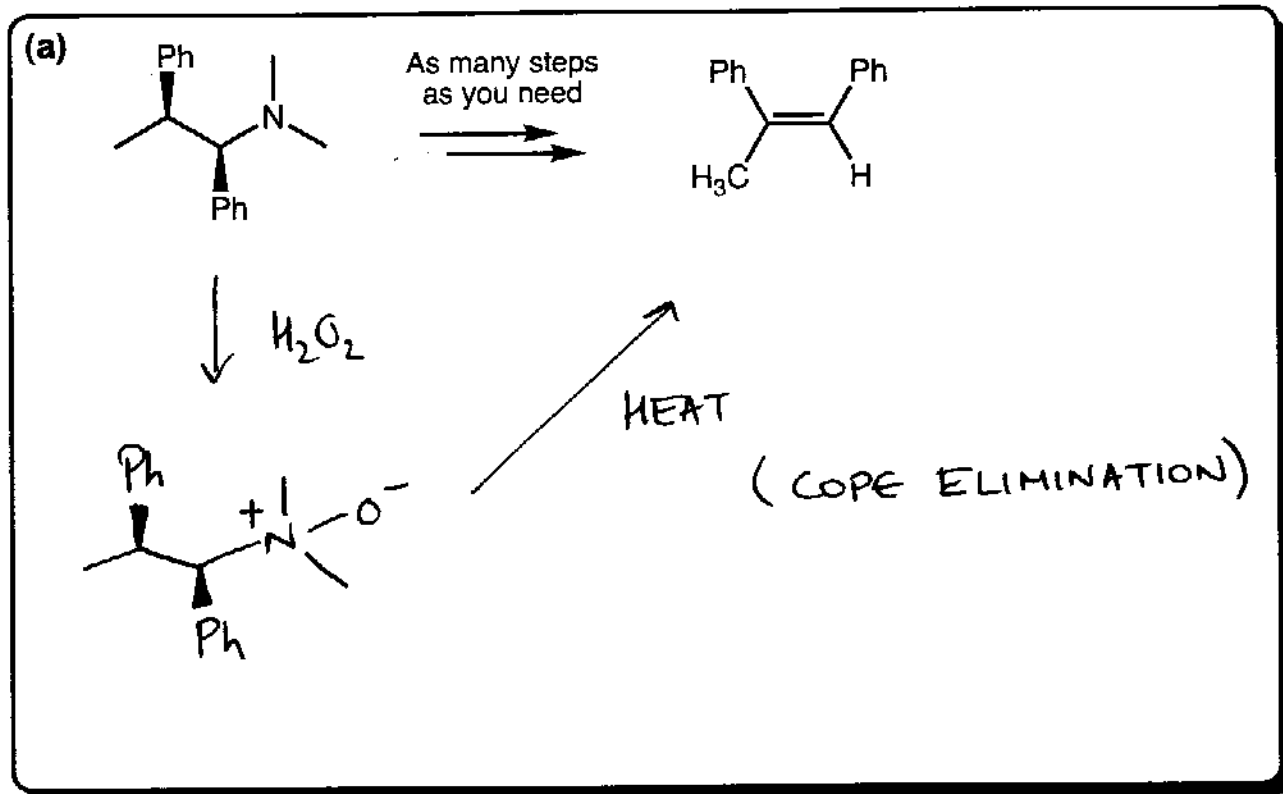 (a)
Ph
N
Ph
As many steps
as you need
Ph
Ph
H₃C
H
H₂O₂
HEAT
(COPE ELIMINATION)
Ph
+
N
O⁻
Ph